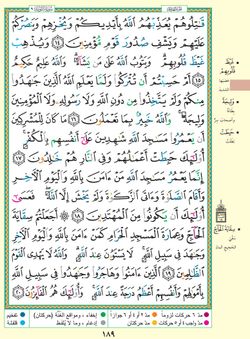 قَٰتِلُوهُمْ يُعَذِّبْهُمُ ٱللَّهُ بِأَيْدِيكُمْ وَيُخْزِهِمْ وَيَنصُرْكُمْ
عَلَيْهِمْ وَيَشْفِ صُدُورَ قَوْمٍ مُّؤْمِنِينَ ١٤ وَيُذْهِبْ
غَيْظَ قُلُوبِهِمْ وَيَتُوبُ ٱللَّهُ عَلَىٰ مَن يَشَآءُ وَٱللَّهُ عَلِيمٌ حَكِيمٌ
١٥ أَمْ حَسِبْتُمْ أَن تُتْرَكُوا۟ وَلَمَّا يَعْلَمِ ٱللَّهُ ٱلَّذِينَ جَٰهَدُوا۟
مِنكُمْ وَلَمْ يَتَّخِذُوا۟ مِن دُونِ ٱللَّهِ وَلَا رَسُولِهِۦ وَلَا ٱلْمُؤْمِنِينَ
وَلِيجَةً وَٱللَّهُ خَبِيرٌۢ بِمَا تَعْمَلُونَ ١٦ مَا كَانَ لِلْمُشْرِكِينَ
أَن يَعْمُرُوا۟ مَسَٰجِدَ ٱللَّهِ شَٰهِدِينَ عَلَىٰٓ أَنفُسِهِم بِٱلْكُفْرِ
أُو۟لَٰٓئِكَ حَبِطَتْ أَعْمَٰلُهُمْ وَفِى ٱلنَّارِ هُمْ خَٰلِدُونَ ١٧
إِنَّمَا يَعْمُرُ مَسَٰجِدَ ٱللَّهِ مَنْ ءَامَنَ بِٱللَّهِ وَٱلْيَوْمِ ٱلْءَاخِرِ
وَأَقَامَ ٱلصَّلَوٰةَ وَءَاتَى ٱلزَّكَوٰةَ وَلَمْ يَخْشَ إِلَّا ٱللَّهَ فَعَسَىٰٓ
أُو۟لَٰٓئِكَ أَن يَكُونُوا۟ مِنَ ٱلْمُهْتَدِينَ ١٨ أَجَعَلْتُمْ سِقَايَةَ
ٱلْحَآجِّ وَعِمَارَةَ ٱلْمَسْجِدِ ٱلْحَرَامِ كَمَنْ ءَامَنَ بِٱللَّهِ وَٱلْيَوْمِ ٱلْءَاخِرِ
وَجَٰهَدَ فِى سَبِيلِ ٱللَّهِ لَا يَسْتَوُۥنَ عِندَ ٱللَّهِ وَٱللَّهُ لَا يَهْدِى ٱلْقَوْمَ
ٱلظَّٰلِمِينَ ١٩ ٱلَّذِينَ ءَامَنُوا۟ وَهَاجَرُوا۟ وَجَٰهَدُوا۟ فِى سَبِيلِ ٱللَّهِ
بِأَمْوَٰلِهِمْ وَأَنفُسِهِمْ أَعْظَمُ دَرَجَةً عِندَ ٱللَّهِ وَأُو۟لَٰٓئِكَ هُمُ ٱلْفَآئِزُونَ ٢٠
غَيْظَ
قُلُوبِهِمْ
وَلِيجَةً
حَبِطَتْ
سِقَايَةَ الْحَاجِّ
١٨٩